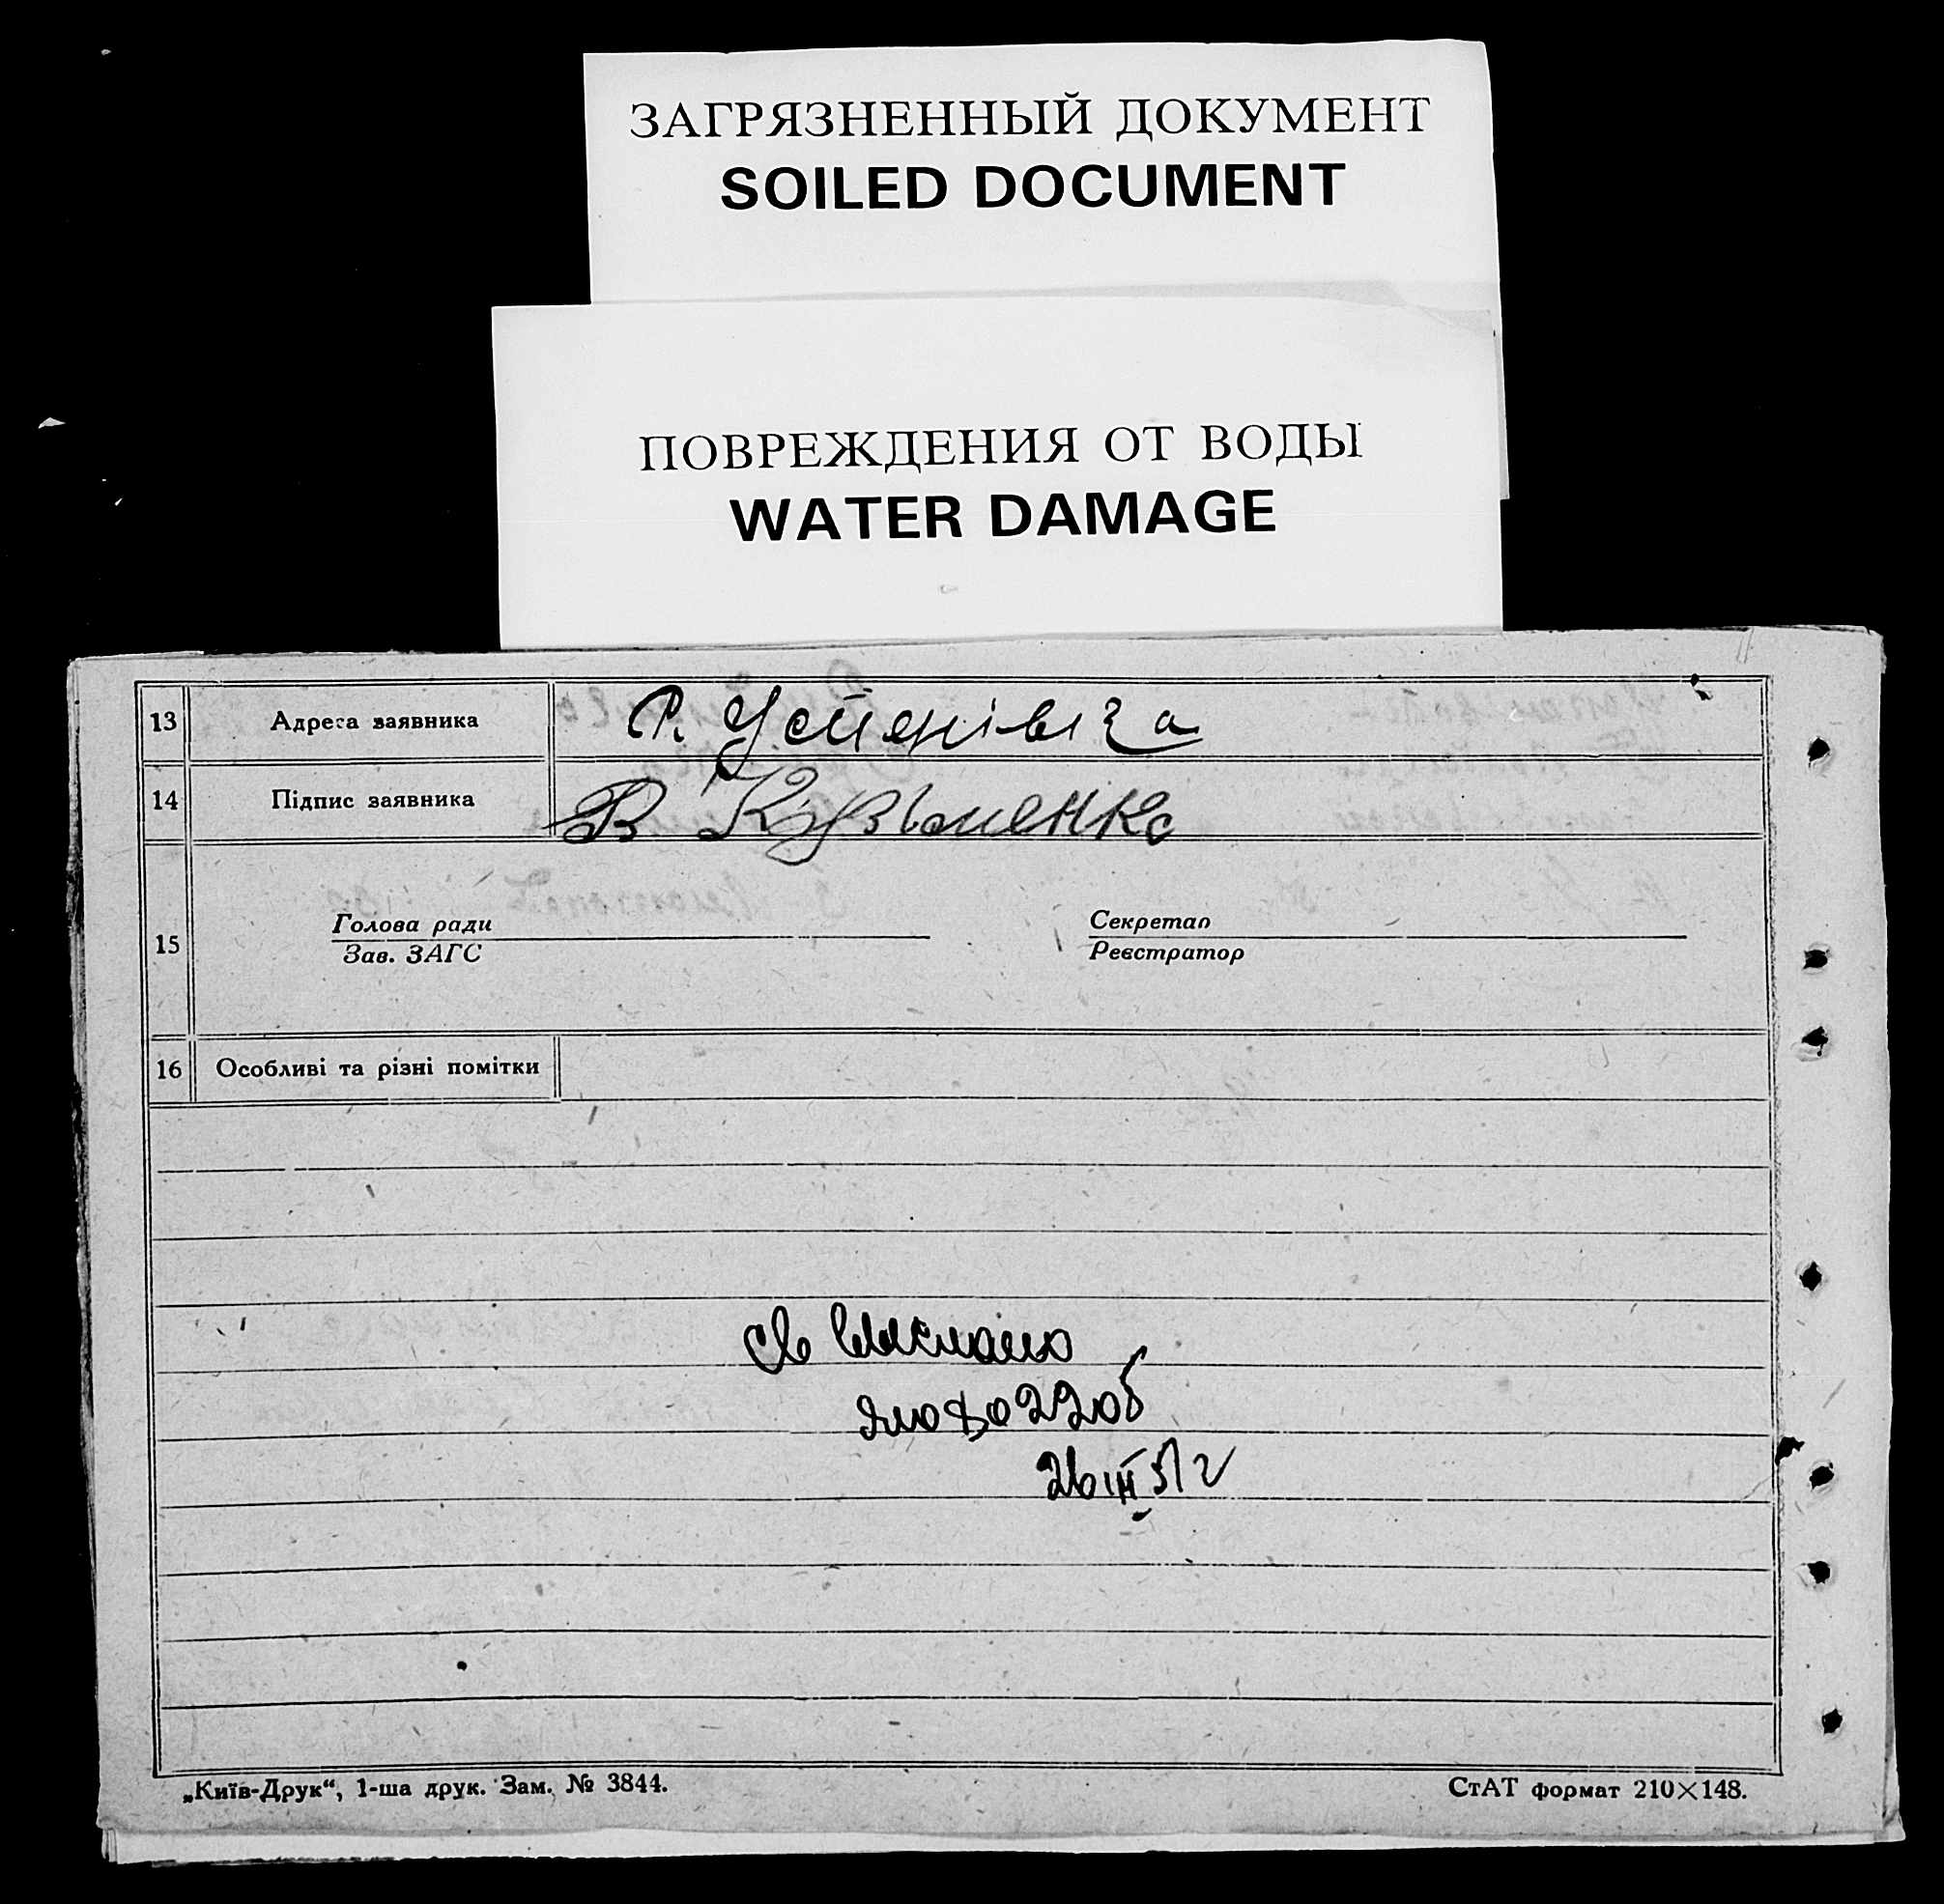 ЗАГРЯЗНЕННЫЙ ДОКУМЕНТ
SOILED DOCUMENT
ПОВРЕЖДЕНИЯ ОТ ВОДЫ
WATER DAMAGE
13 Адреса заявника
14 Підпис заявника В Кузьменко
Голова ради Секретар
15
Зав. ЗАГС Реєстратор
16 Особливі та різні помітки
26 III 51 г
„Київ-Друк“, 1-ша друк. Зам. № 3844. СтАТ формат 210×148.